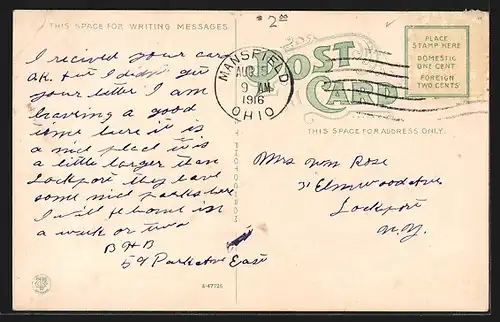 THIS SPACE FOR WRITING MESSAGES
* 2⁰⁰
I recived your card
OK. but I didn't get
your letter I am
having a good
time here it is
a nice place it is
a little larger than
Lockport they have
some nice parks here
I will be home in
a week or two
B H B
59 Park Ave East
MANSFIELD
AUG 5
9 AM
1916
OHIO
POST
CARD
PLACE
STAMP HERE
DOMESTIC
ONE CENT
FOREIGN
TWO CENTS
THIS SPACE FOR ADDRESS ONLY.
Mrs Wm Rose
31 Elmwood Ave
Lockport
N.Y.
A-47725